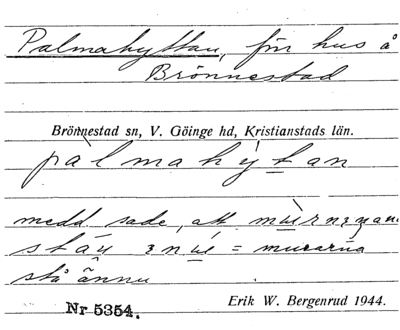 Palmahyttan, för hus å
Brönnestad
Brönnestad sn, V. Göinge hd, Kristianstads län.
pàlmahỳtan
medd. sade, att
= murarna
stå ännu
Nr 5354.
Erik W. Bergenrud 1944.